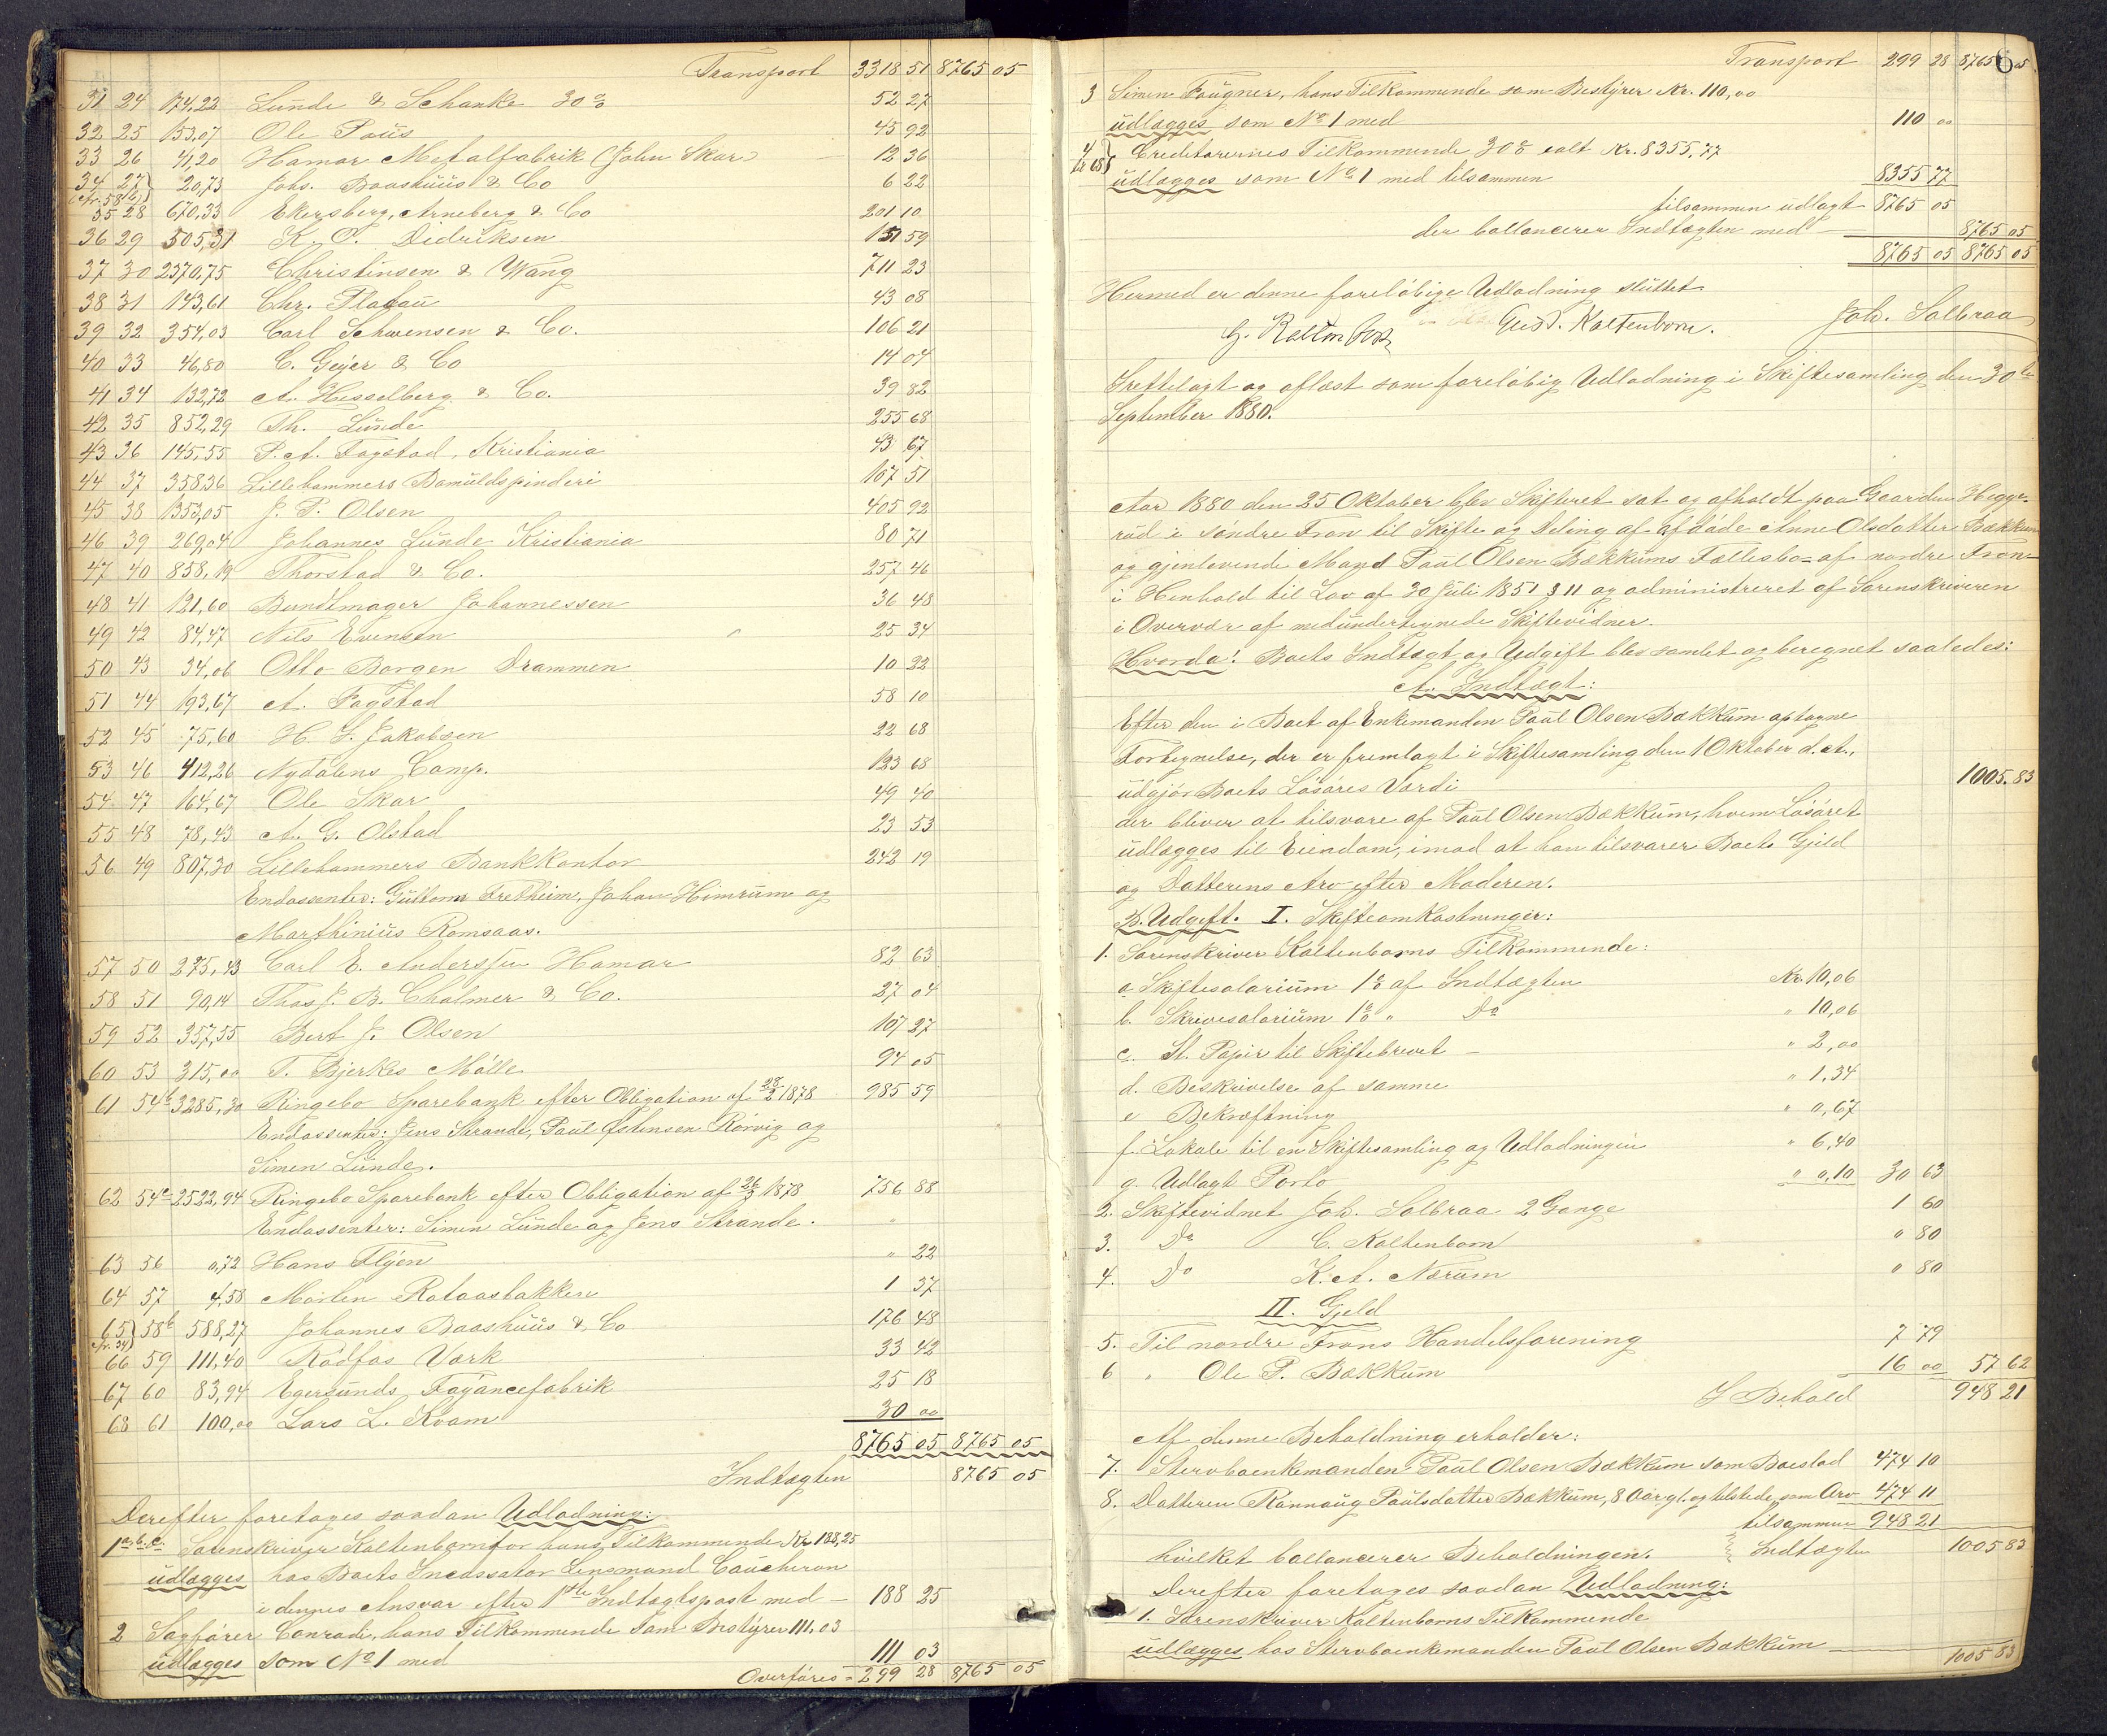 Transport 3318 51 8765 05
31 24 174,22 Lunde & Schanke 30% 52 27
32 25 153,07 Ole Paus 45 92
33 26 41,20 Hamar Metalfabrik (John Skar) 12 36
34 27 20,75 Johs. Baashuus & Co 6 22
(Nr. 58b)
35 28 670,33 Ekersberg, Arneberg & Co 201 10
36 29 505,31 K. T. Didriksen 151 59
37 30 2370,75 Christinsen & Wang 711 23
38 31 143,61 Chr. Platau 43 08
39 32 354,03 Carl Schwensen & Co. 106 21
40 33 46,80 C. Geijer & Co 14 04
41 34 132,72 A. Hesselberg & Co. 39 82
42 35 852,29 Th. Lunde 255 68
43 36 145,55 P. A. Fagstad, Kristiania 43 67
44 37 358,36 Lillehammers Bomuldspinderi 107 51
45 38 1353,05 J. P. Olsen 405 92
46 39 269,04 Johannes Lunde Kristiania 80 71
47 40 858,19 Thorstad & Co. 257 46
48 41 121,60 Bundtmager Johannessen 36 48
49 42 84,47 Nils Evensen 25 34
50 43 34,06 Otto Borgen Drammen 10 22
51 44 193,67 A. Fagstad 58 10
52 45 75,60 H. S. Jakobsen 22 68
53 46 412,26 Nydalens Comp. 123 68
54 47 164,67 Ole Skar 49 40
55 48 78,43 A. G. Olstad 23 53
56 49 807,30 Lillehammers Bankkontor 242 19
Endossenter: Guttorm Fretheim, Johan Himrum og
Marthinius Romsaas.
57 50 275,43 Carl E. Anderssen Hamar 82 63
58 51 90,14 Thos J. B. Chalmer & Co. 27 04
59 52 357,55 Bert J. Olsen 107 27
60 53 315,00 T. Bjerkes Mølle 94 05
61 54b 3285,30 Ringebo Sparebank efter Obligation af 28/2 1878 985 59
Endossenter: Jens Strande, Paul Østensen Rørvig og
Simen Lunde.
62 54c 2522,94 Ringebo Sparebank efter Obligation af 26/3 1878 756 88
Endossenter: Simen Lunde og Jens Strande.
63 56 0,72 Hans Flyen " 22
64 57 4,58 Morten Rataasbakken 1 37
65 58b 588,27 Johannes Baashuus & Co 176 48
(Nr. 34)
66 59 111,40 Rødfos Værk 33 42
67 60 83,94 Egersunds Fayancefabrik 25 18
68 61 100,00 Lars L. Kvam 30 00
8765 05 8765 05
Indtægten 8765 05
Derefter foretages saadan Udlodning:
1 a. b. c. Sorenskriver Kaltenborn for hans Tilkommende Kr. 188,25
udlægges hos Boets Incassator Lensmand Caucheron
i dennes Ansvar efter 1ste Indtægtspost med – 188 25
2 Sagfører Conradi, hans Tilkommende som Bestyrer 111.03
udlægges som No 1 med 111 03
Overføres = 299 28 8765 05
6
Transport 299 28 8765 05
3 Simen Fougner, hans Tilkommende som Bestyrer Kr. 110,00
udlægges som No 1 med 110 00
4 til 68 Creditorernes Tilkommende 30% ialt Kr. 8355,77
udlægges som No 1 med tilsammen 8355 77
tilsammen udlagt 8765 05
der ballancerer Indtægten med 8765 05
8765 05 8765 05
Hermed er denne foreløbige Udlodning sluttet
G. Kaltenborn Gust. Kaltenborn. Joh. Solbraa
Fremlagt og oplæst som foreløbig Udlodning i Skiftesamling den 30te
September 1880.
Aar 1880 den 25 Oktober blev Skifteret sat og afholdt paa Gaarden Hegge-
rud i søndre Fron til Skifte og Deling af afdøde Anne Olsdatter Bækkum
og gjenlevende Mand Paul Olsen Bækkums Fællesbo af nordre Fron –
i Henhold til Lov af 30 Juli 1851 § 11 og administreret af Sorenskriveren
i Overvær af medundertegnede Skiftevidner.
Hvorda: Boets Indtægt og Udgift blev samlet og beregnet saaledes:
A. Indtægt:
Efter den i Boet af Enkemanden Paul Olsen Bækkum optagne
Fortegnelse, der er fremlagt i Skiftesamling den 1 Oktober d. A.,
udgjør Boets Løsøres Værdi 1005.83
der bliver at tilsvare af Paul Olsen Bækkum, hvem Løsøret
udlægges til Eiendom, imod at han tilsvarer Boets Gjeld
og Datterens Arv efter Moderen.
B. Udgift. I. Skifteomkostninger:
1. Sorenskriver Kaltenborns Tilkommende:
a. Skiftesalarium 1% af Indtægten Kr. 10,06
b. Skrivesalarium 1% " Do " 10,06
c. St. Papir til Skiftebrevet – " 2,00
d. Beskrivelse af samme " 1,34
e Bekræftning " 0,67
f. Lokale til en Skiftesamling og Udlodningen " 6,40
g. Udlagt Porto " 0,10 30 63
2. Skiftevidnet Joh. Solbraa 2 Gange 1 60
3. Do C. Kaltenborn " 80
4. Do K. A. Nærum " 80
II. Gjeld
5. Til nordre Frons Handelsforening 7 79
6 " Ole P. Bækkum 16 00 57 62
I Behold 948 21
Af denne Beholdning erholder:
7. Stervboenkemanden Paul Olsen Bækkum som Boeslod 474 10
8. Datteren Rannaug Paulsdatter Bækkum, 8 Aar gl. og tilstede, som Arv 474 11
tilsammen 948 21
hvilket ballancerer Beholdningen. Indtægten 1005 83
Derefter foretages saadan Udlodning:
1. Sorenskriver Kaltenborns Tilkommende
udlægges hos Stervboenkemanden Paul Olsen Bækkum 1005 83